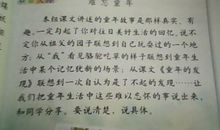 难忘童年
本组课文讲述的童年故事是那样真实、有
趣，一定勾起了你对往日美好生活的回忆，说不
定你从祖父的园子联想到自己玩耍过的一个地
方，从“我”看见骆驼吃草的样子联想到童年生
活中某个记忆犹新的场景；从课文《童年的发
现》联想到一次自认为是了不起的发现……让
我们把童年生活中这些难以忘怀的事说出来，
和同学分享。要说清楚，说具体。